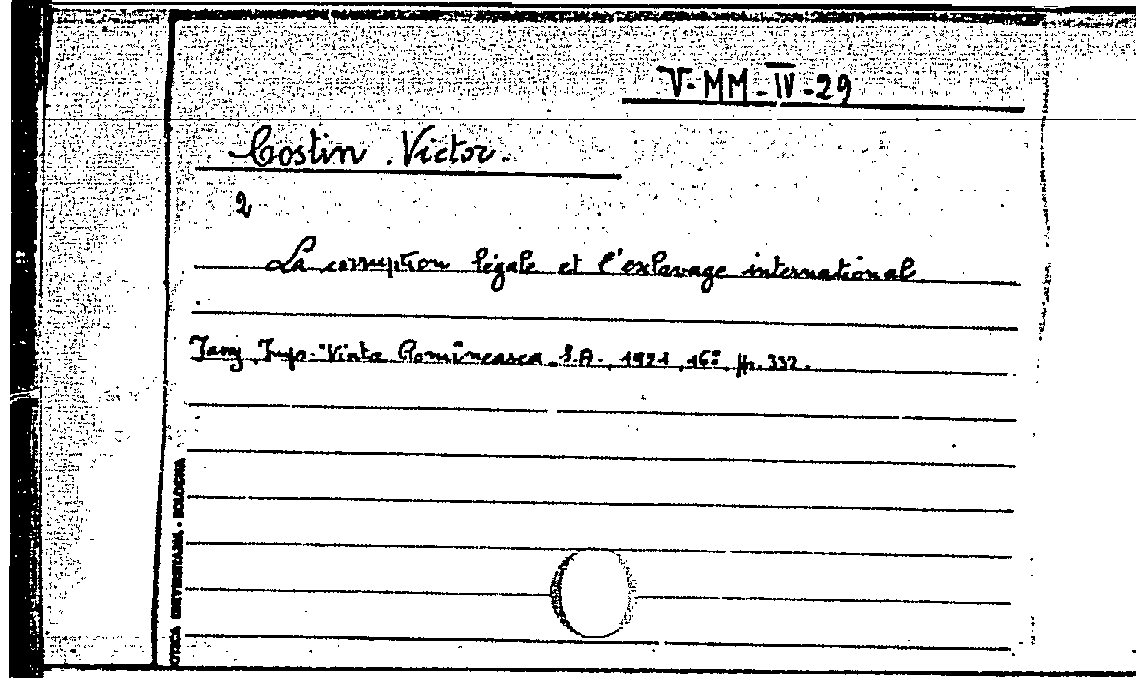 V-MM-IV-29
Costin Victor.
2
La corruption légale et l'exlavage international
Jasy, Imp. "Viata Romîneasca" S.A., 1921, 16º pp. 332.
OTECA UNIVERSITARIA - BOLOGNA